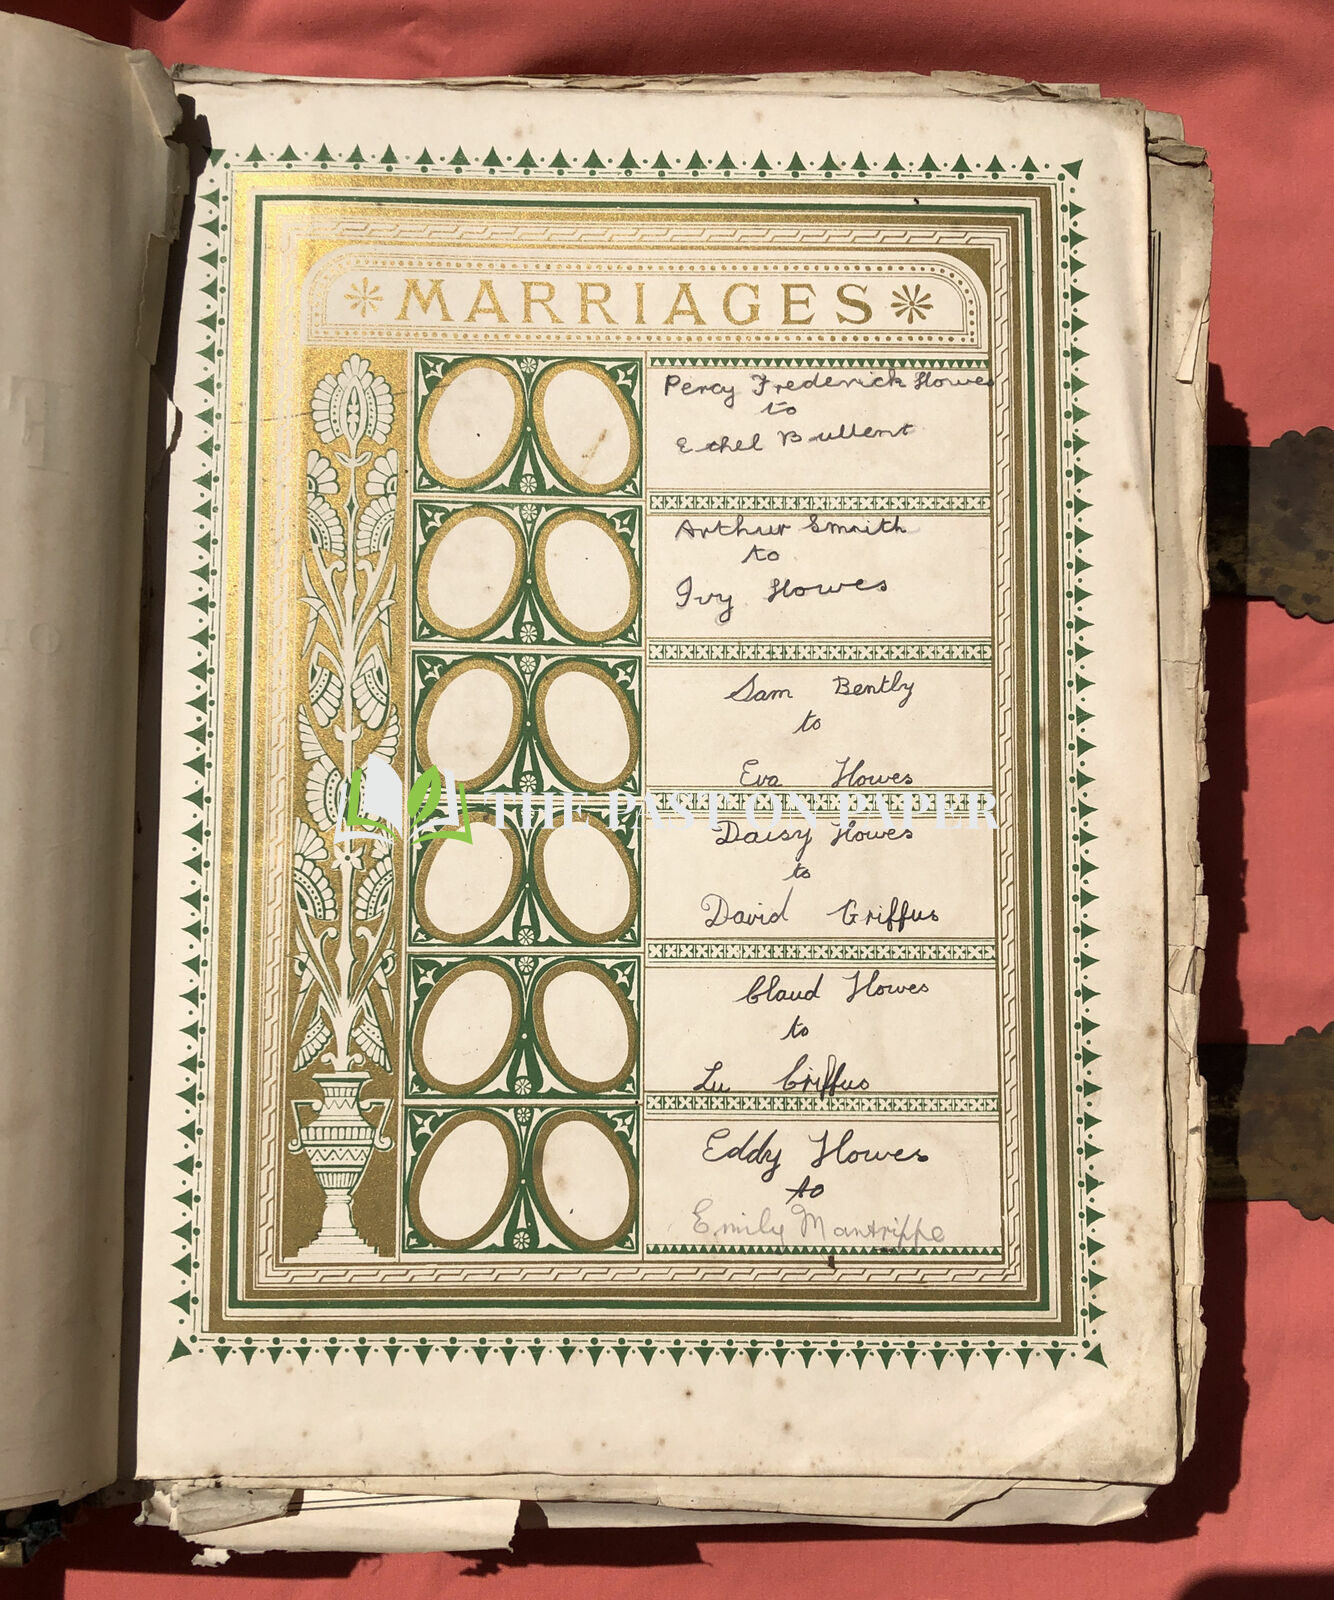 MARRIAGES
Percy Frederick Howes
to
Ethel Bullent
Arthur Smith
to
Ivy Howes
Sam Bently
to
Eva Howes
THE PAST ON PAPER
Daisy Howes
to
David Griffus
Claud Howes
to
Lu Griffus
Eddy Howes
to
Emily Mantrippe